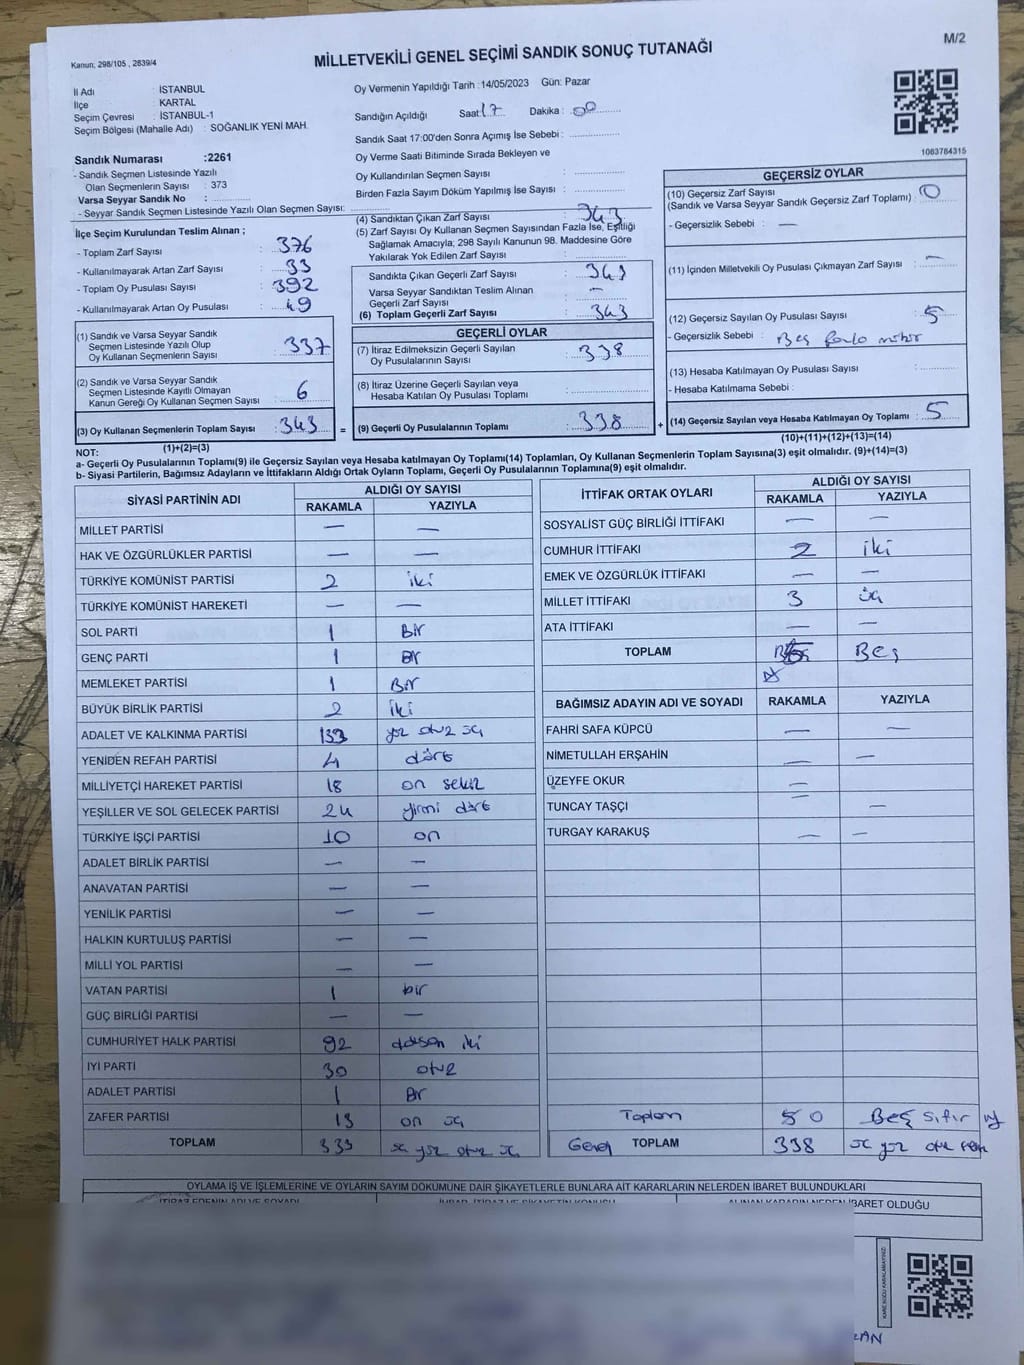 M/2
Kanun: 298/105 , 2839/4
MİLLETVEKİLİ GENEL SEÇİMİ SANDIK SONUÇ TUTANAĞI
İl Adı : İSTANBUL
İlçe : KARTAL
Seçim Çevresi : İSTANBUL-1
Seçim Bölgesi (Mahalle Adı) : SOĞANLIK YENİ MAH.
Sandık Numarası :2261
- Sandık Seçmen Listesinde Yazılı
Olan Seçmenlerin Sayısı : 373
Varsa Seyyar Sandık No :
- Seyyar Sandık Seçmen Listesinde Yazılı Olan Seçmen Sayısı:
Oy Vermenin Yapıldığı Tarih :14/05/2023 Gün: Pazar
Sandığın Açıldığı Saat: 17 Dakika : 00
Sandık Saat 17:00'den Sonra Açımış İse Sebebi :
Oy Verme Saati Bitiminde Sırada Bekleyen ve
Oy Kullandırılan Seçmen Sayısı :
Birden Fazla Sayım Döküm Yapılmış İse Sayısı :
1083784315
İlçe Seçim Kurulundan Teslim Alınan ;
- Toplam Zarf Sayısı : 376
- Kullanılmayarak Artan Zarf Sayısı : 33
- Toplam Oy Pusulası Sayısı : 392
- Kullanılmayarak Artan Oy Pusulası : 49
(1) Sandık ve Varsa Seyyar Sandık
Seçmen Listesinde Yazılı Olup
Oy Kullanan Seçmenlerin Sayısı : 337
(2) Sandık ve Varsa Seyyar Sandık
Seçmen Listesinde Kayıtlı Olmayan
Kanun Gereği Oy Kullanan Seçmen Sayısı : 6
(3) Oy Kullanan Seçmenlerin Toplam Sayısı : 343
(1)+(2)=(3)
(4) Sandıktan Çıkan Zarf Sayısı : 343
(5) Zarf Sayısı Oy Kullanan Seçmen Sayısından Fazla İse, Eşitliği
Sağlamak Amacıyla; 298 Sayılı Kanunun 98. Maddesine Göre
Yakılarak Yok Edilen Zarf Sayısı :
Sandıkta Çıkan Geçerli Zarf Sayısı : 343
Varsa Seyyar Sandıktan Teslim Alınan
Geçerli Zarf Sayısı : —
(6) Toplam Geçerli Zarf Sayısı : 343
GEÇERLİ OYLAR
(7) İtiraz Edilmeksizin Geçerli Sayılan
Oy Pusulalarının Sayısı : 338
(8) İtiraz Üzerine Geçerli Sayılan veya
Hesaba Katılan Oy Pusulası Toplamı :
= (9) Geçerli Oy Pusulalarının Toplamı : 338 +
GEÇERSİZ OYLAR
(10) Geçersiz Zarf Sayısı
(Sandık ve Varsa Seyyar Sandık Geçersiz Zarf Toplamı) : 0
- Geçersizlik Sebebi : —
(11) İçinden Milletvekili Oy Pusulası Çıkmayan Zarf Sayısı : —
(12) Geçersiz Sayılan Oy Pusulası Sayısı : 5
- Geçersizlik Sebebi : Beş fazla mühür
(13) Hesaba Katılmayan Oy Pusulası Sayısı :
- Hesaba Katılmama Sebebi :
(14) Geçersiz Sayılan veya Hesaba Katılmayan Oy Toplamı : 5
(10)+(11)+(12)+(13)=(14)
NOT:
a- Geçerli Oy Pusulalarının Toplamı(9) ile Geçersiz Sayılan veya Hesaba katılmayan Oy Toplamı(14) Toplamları, Oy Kullanan Seçmenlerin Toplam Sayısına(3) eşit olmalıdır. (9)+(14)=(3)
b- Siyasi Partilerin, Bağımsız Adayların ve İttifakların Aldığı Ortak Oyların Toplamı, Geçerli Oy Pusulalarının Toplamına(9) eşit olmalıdır.
SİYASİ PARTİNİN ADI ALDIĞI OY SAYISI
RAKAMLA YAZIYLA
MİLLET PARTİSİ — —
HAK VE ÖZGÜRLÜKLER PARTİSİ — —
TÜRKİYE KOMÜNİST PARTİSİ 2 iki
TÜRKİYE KOMÜNİST HAREKETİ — —
SOL PARTİ 1 Bir
GENÇ PARTİ 1 Bir
MEMLEKET PARTİSİ 1 Bir
BÜYÜK BİRLİK PARTİSİ 2 iki
ADALET VE KALKINMA PARTİSİ 133 yüz otuz üç
YENİDEN REFAH PARTİSİ 4 dört
MİLLİYETÇİ HAREKET PARTİSİ 18 on sekiz
YEŞİLLER VE SOL GELECEK PARTİSİ 24 yirmi dört
TÜRKİYE İŞÇİ PARTİSİ 10 on
ADALET BİRLİK PARTİSİ — —
ANAVATAN PARTİSİ — —
YENİLİK PARTİSİ — —
HALKIN KURTULUŞ PARTİSİ — —
MİLLİ YOL PARTİSİ — —
VATAN PARTİSİ 1 bir
GÜÇ BİRLİĞİ PARTİSİ — —
CUMHURİYET HALK PARTİSİ 92 doksan iki
İYİ PARTİ 30 otuz
ADALET PARTİSİ 1 Bir
ZAFER PARTİSİ 13 on üç
TOPLAM 333 üç yüz otuz üç
İTTİFAK ORTAK OYLARI ALDIĞI OY SAYISI
RAKAMLA YAZIYLA
SOSYALİST GÜÇ BİRLİĞİ İTTİFAKI — —
CUMHUR İTTİFAKI 2 iki
EMEK VE ÖZGÜRLÜK İTTİFAKI — —
MİLLET İTTİFAKI 3 üç
ATA İTTİFAKI — —
TOPLAM Beş
BAĞIMSIZ ADAYIN ADI VE SOYADI RAKAMLA YAZIYLA
FAHRİ SAFA KÜPCÜ — —
NİMETULLAH ERŞAHİN — —
ÜZEYFE OKUR —
TUNCAY TAŞÇI — —
TURGAY KARAKUŞ — —
Toplam 50 Beş sıfır
Genel TOPLAM 338 üç yüz otuz sekiz
OYLAMA İŞ VE İŞLEMLERİNE VE OYLARIN SAYIM DÖKÜMÜNE DAİR ŞİKAYETLERLE BUNLARA AİT KARARLARIN NELERDEN İBARET BULUNDUKLARI
İTİRAZ EDENİN ADI VE SOYADI
ALINAN KARARIN NEDEN İBARET OLDUĞU
KARE KODU KARALAMAYINIZ!